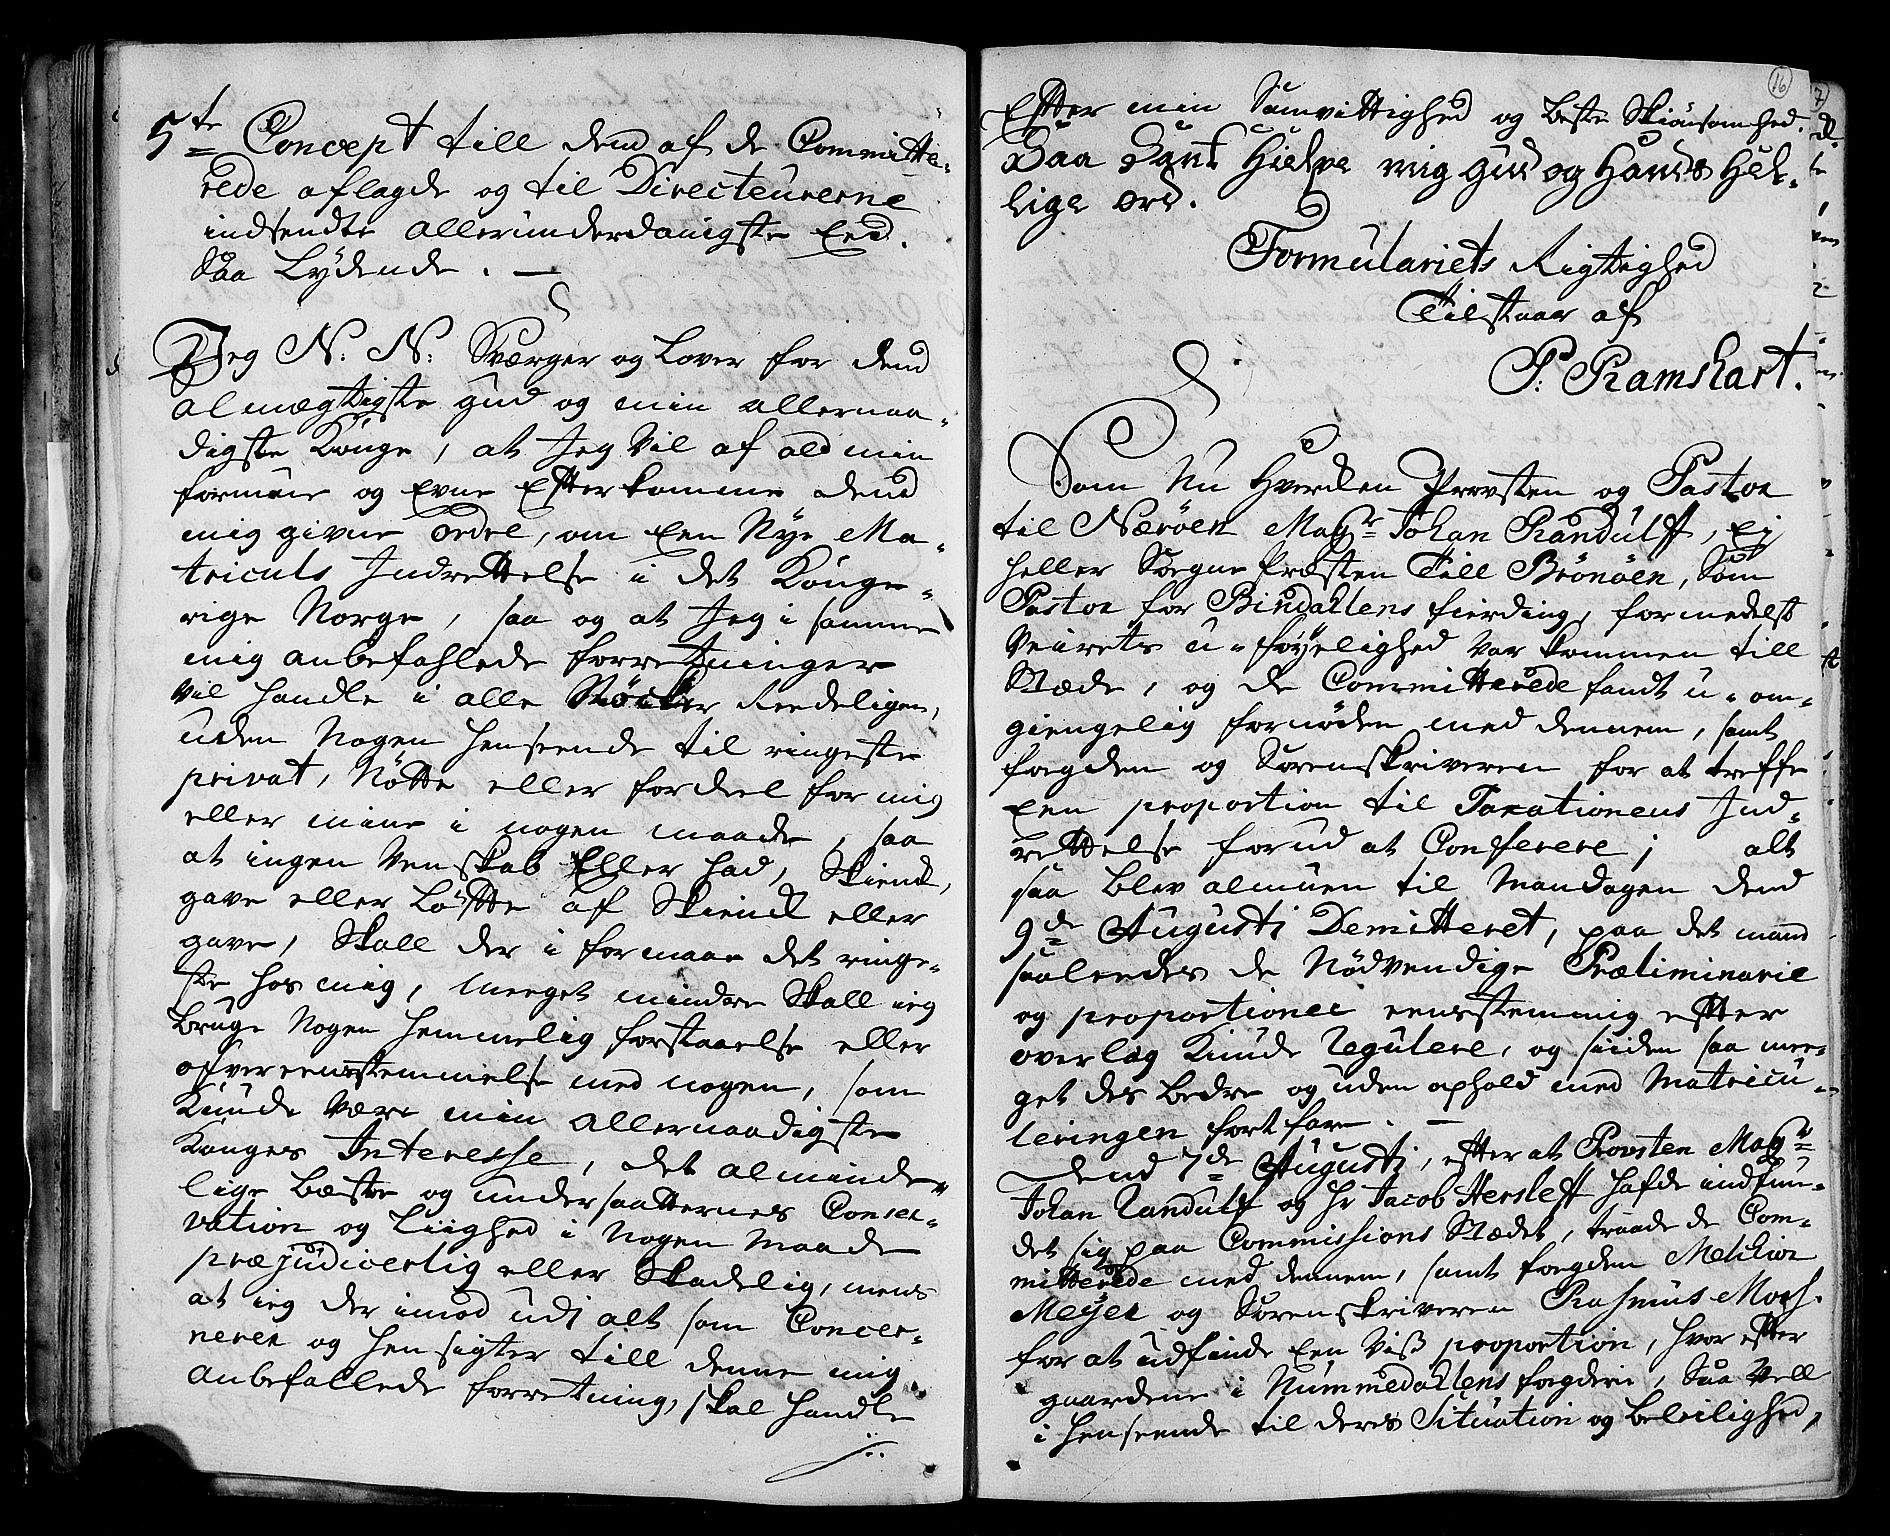 5te Concept till dend af de Committe-
rede aflagde og til Directeurerne
indsendte allerunderdanigste Eed.
Saa Lydende. —
Jeg N: N: Sværger og Lover for dend
almægtigste gud og min allernaa-
digste Konge, at Jeg vil af ald min
formue og Evne Efterkomme dend
mig givne ordre, om Een Nye Ma-
triculs Indrettelse i det Konge-
rige Norge, saa og at Jeg i samme
mig anbefahlede forretninger
vil handle i alle Stöcker Reedeligen,
uden Nogen henseende til ringeste
privat, Nötte eller fordeel for mig
eller mine i nogen maade, saa
at ingen Venskab Eller had, Skienk,
gave eller Löfte af Skienck eller
gave, Skall der i formaae det ringe-
ste hos mig, meeget mindre Skall ieg
bruge Nogen hemmelig forstaaelse eller
ofvereensstemmelse med nogen, som
Kunde være min Allernaadigste
Konges Interesse, det alminde-
lige bæste og undersaatternes Conser-
vation og Liighed i Nogen maade
præjudicerlig eller Skadelig, mens
at ieg der imod udi alt som Concer-
nerer og hensigter till denne mig
anbefallede forretning, skal handle
16
7
Efter min Samvittighed og beste Skiönsomhed.
Saa Sant Hielpe mig Gud og Hands Hel-
lige ord.
Formulariets Rigtighed
Tilstaar af
P: Ramshart.
Som Nu Hverden Provsten og Pastor
til Næröen Magr Johan Randulff, Ej
heller Sogne Præsten Till Brönöen, Som
Pastor for Bindallens fierding, formedelst
Veirets u-föyelighed var kommen till
Stæde, og de Committerede fandt u-om-
giengelig fornöden med dennem, samt
fogden og Sorenskriveren for at treffe
Een proportion til Taxationens Ind-
rettelse forud at Conferere; alt
saa blev almuen til Mandagen dend
9de Augusti Demitteret, paa det mand
saaleedes de Nödvendige Præliminarie
og proportioner eensstemmig efter
overlæg Kunde Regulere, og siiden saa mee-
get des bedre og uden ophold med Matricu-
leringen fortfare. —
Dend 7de Augusti, efter at Provsten Magr
Johan Randulff og Hr Jacob Hersleff hafde indfun-
det sig paa Commissions Stædet, traade de Com-
mitterede med dennem, samt fogden Melchior
Meyer og Sorenskriveren Rasmus Mosh.
for at udfinde Een Viss proportion, hvor efter
gaardene i Nummedallens fogderie, Saa Vell
i henseende til deres Situation og beleilighed,